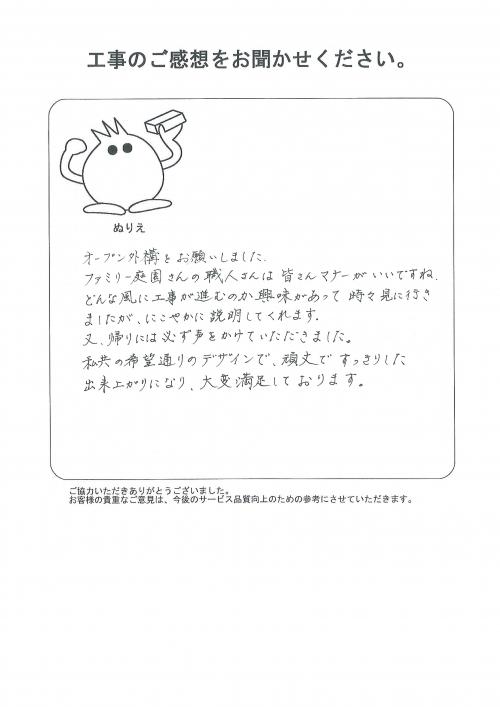 工事のご感想をお聞かせください。
ぬりえ
オープン外構をお願いしました.
ファミリー庭園さんの職人さんは皆さんマナーがいいですね.
どんな風に工事が進むのか興味があって時々見に行き
ましたが、にこやかに説明してくれます.
又、帰りには必ず声をかけていただきました。
私共の希望通りのデザインで、頑丈ですっきりした
出来上がりになり、大変満足しております。
ご協力いただきありがとうございました。
お客様の貴重なご意見は、今後のサービス品質向上のための参考にさせていただきます。